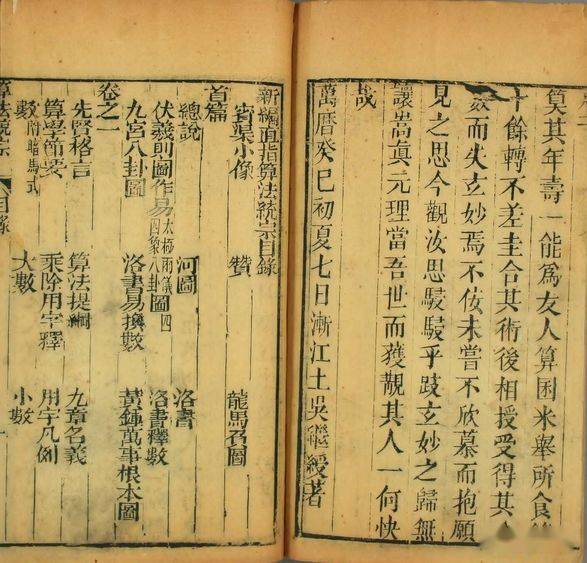 筭其年壽一能為友人算囷米舉所食筭
十餘轉不差圭合其術後相授受得其
而失玄妙焉不佞未嘗不欣慕而抱願
見之思今觀汝思駸駸乎跂玄妙之歸無
讓嵩真元理當吾世而獲覯其人一何快
哉
萬曆癸巳初夏七日漸江土吳繼綬著
新編直指算法統宗目錄
賓渠小像 贊 龍馬負圖
首篇
總說 河圖 洛書
伏羲則圖作易太極兩儀四象八卦圖 洛書釋數
九宮八卦圖 洛書易換數 黃鍾萬事根本圖
卷之一
先賢格言 算法提綱 九章名義
算學節要 乘除用字釋 用字凡例
數附暗馬式 大數 小數
算法統宗 目錄 一